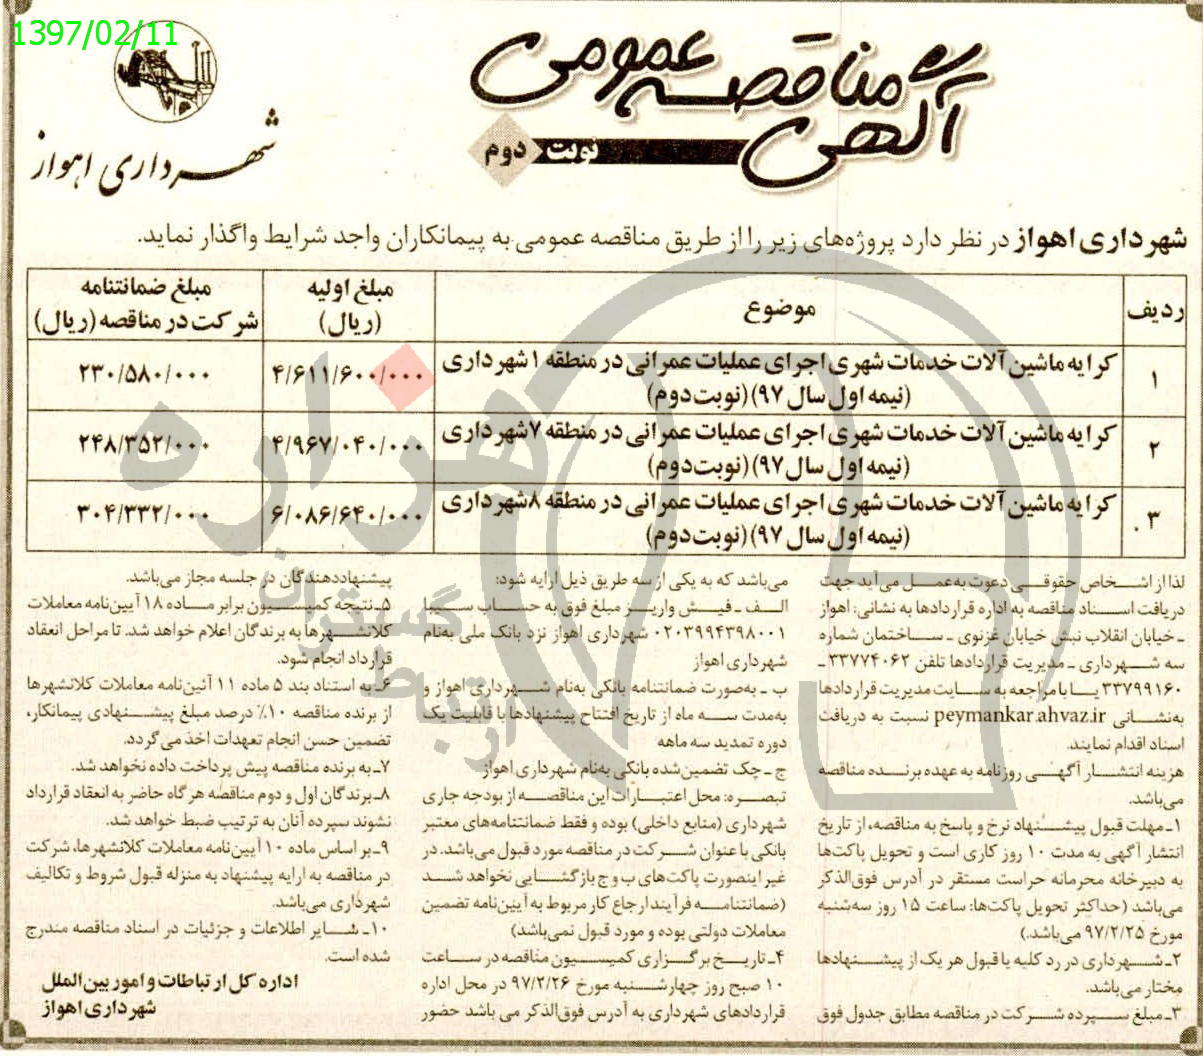 1397/02/11
آگهی مناقصه عمومی
نوبت دوم
شهرداری اهواز
شهرداری اهواز در نظر دارد پروژه‌های زیر را از طریق مناقصه عمومی به پیمانکاران واجد شرایط واگذار نماید.
ردیف	موضوع	مبلغ اولیه (ریال)	مبلغ ضمانتنامه شرکت در مناقصه (ریال)
۱	کرایه ماشین آلات خدمات شهری اجرای عملیات عمرانی در منطقه ۱ شهرداری (نیمه اول سال ۹۷) (نوبت دوم)	۴/۶۱۱/۶۰۰/۰۰۰	۲۳۰/۵۸۰/۰۰۰
۲	کرایه ماشین آلات خدمات شهری اجرای عملیات عمرانی در منطقه ۷ شهرداری (نیمه اول سال ۹۷) (نوبت دوم)	۴/۹۶۷/۰۴۰/۰۰۰	۲۴۸/۳۵۲/۰۰۰
۳	کرایه ماشین آلات خدمات شهری اجرای عملیات عمرانی در منطقه ۸ شهرداری (نیمه اول سال ۹۷) (نوبت دوم)	۶/۰۸۶/۶۴۰/۰۰۰	۳۰۴/۳۳۲/۰۰۰
لذا از اشخاص حقوقی دعوت به‌عمل می آید جهت
دریافت اسناد مناقصه به اداره قراردادها به نشانی: اهواز
ـ خیابان انقلاب نبش خیابان غزنوی ـ ساختمان شماره
سه شهرداری ـ مدیریت قراردادها تلفن ۳۳۷۷۴۰۶۲ ـ
۳۳۷۹۹۱۶۰ یا با مراجعه به سایت مدیریت قراردادها
به‌نشانی peymankar.ahvaz.ir نسبت به دریافت
اسناد اقدام نمایند.
هزینه انتشار آگهی روزنامه به عهده برنده مناقصه
می‌باشد.
۱ـ مهلت قبول پیشنهاد نرخ و پاسخ به مناقصه، از تاریخ
انتشار آگهی به مدت ۱۰ روز کاری است و تحویل پاکت‌ها
به دبیرخانه محرمانه حراست مستقر در آدرس فوق‌الذکر
می‌باشد (حداکثر تحویل پاکت‌ها: ساعت ۱۵ روز سه‌شنبه
مورخ ۹۷/۲/۲۵ می‌باشد.)
۲ـ شهرداری در رد کلیه یا قبول هر یک از پیشنهادها
مختار می‌باشد.
۳ـ مبلغ سپرده شرکت در مناقصه مطابق جدول فوق
می‌باشد که به یکی از سه طریق ذیل ارایه شود:
الف ـ فیش واریز مبلغ فوق به حساب سیبا
۰۲۰۳۹۹۴۳۹۸۰۰۱ شهرداری اهواز نزد بانک ملی به‌نام
شهرداری اهواز
ب ـ به‌صورت ضمانتنامه بانکی به‌نام شهرداری اهواز و
به‌مدت سه ماه از تاریخ افتتاح پیشنهادها با قابلیت یک
دوره تمدید سه ماهه
ج ـ چک تضمین‌شده بانکی به‌نام شهرداری اهواز
تبصره: محل اعتبارات این مناقصه از بودجه جاری
شهرداری (منابع داخلی) بوده و فقط ضمانتنامه‌های معتبر
بانکی با عنوان شرکت در مناقصه مورد قبول می‌باشد. در
غیر اینصورت پاکت‌های ب و ج بازگشایی نخواهد شد
(ضمانتنامه فرآیند ارجاع کار مربوط به آیین‌نامه تضمین
معاملات دولتی بوده و مورد قبول نمی‌باشد)
۴ـ تاریخ برگزاری کمیسیون مناقصه در ساعت
۱۰ صبح روز چهارشنبه مورخ ۹۷/۲/۲۶ در محل اداره
قراردادهای شهرداری به آدرس فوق‌الذکر می باشد حضور
پیشنهاددهندگان در جلسه مجاز می‌باشد.
۵ـ نتیجه کمیسیون برابر ماده ۱۸ آیین‌نامه معاملات
کلانشهرها به برندگان اعلام خواهد شد. تا مراحل انعقاد
قرارداد انجام شود.
۶ـ به استناد بند ۵ ماده ۱۱ آئین‌نامه معاملات کلانشهرها
از برنده مناقصه ۱۰٪ درصد مبلغ پیشنهادی پیمانکار،
تضمین حسن انجام تعهدات اخذ می گردد.
۷ـ به برنده مناقصه پیش پرداخت داده نخواهد شد.
۸ـ برندگان اول و دوم مناقصه هرگاه حاضر به انعقاد قرارداد
نشوند سپرده آنان به ترتیب ضبط خواهد شد.
۹ـ بر اساس ماده ۱۰ آیین‌نامه معاملات کلانشهرها، شرکت
در مناقصه به ارایه پیشنهاد به منزله قبول شروط و تکالیف
شهرداری می‌باشد.
۱۰ـ سایر اطلاعات و جزئیات در اسناد مناقصه مندرج
شده است.
اداره کل ارتباطات و امور بین‌الملل
شهرداری اهواز
هزاره
گستران
ارتباط